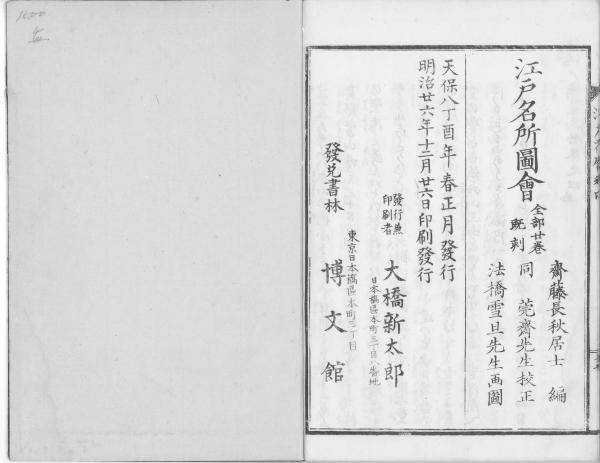 江戸名所圖會 全部廿巻 既刻
齋藤長秋居士 編
同 莞齋先生挍正
法橋雪旦先生画圖
天保八丁酉年春正月發行
明治廿六年十二月廿六日印刷發行
發行兼
印刷者
大橋新太郎
日本橋區本町三丁目八番地
東京日本橋區本町三丁目
發兌書林 博文館